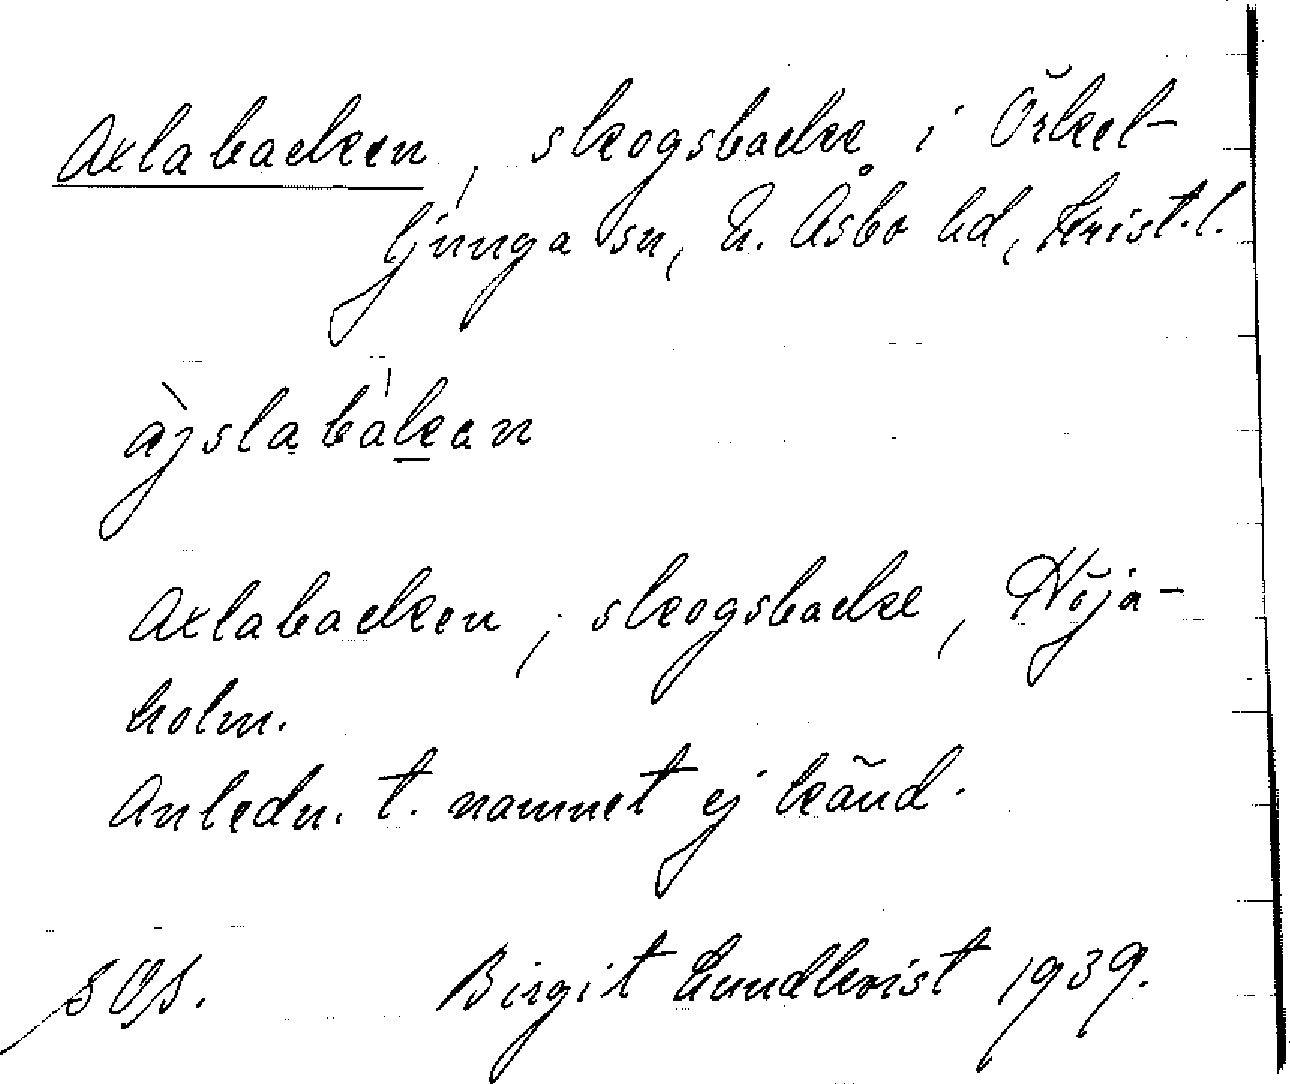 Axlabacken, skogsbacke i Örkel-
ljunga sn, N. Åsbo hd, Krist. l.
àjslabàkan
Axlabacken, skogsbacke, Höja-
holm.
Anledn. t. namnet ej känd.
SOS. Birgit Lundkvist 1939.